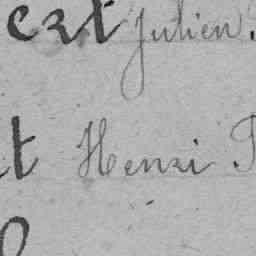 ert Julien.
t Henri